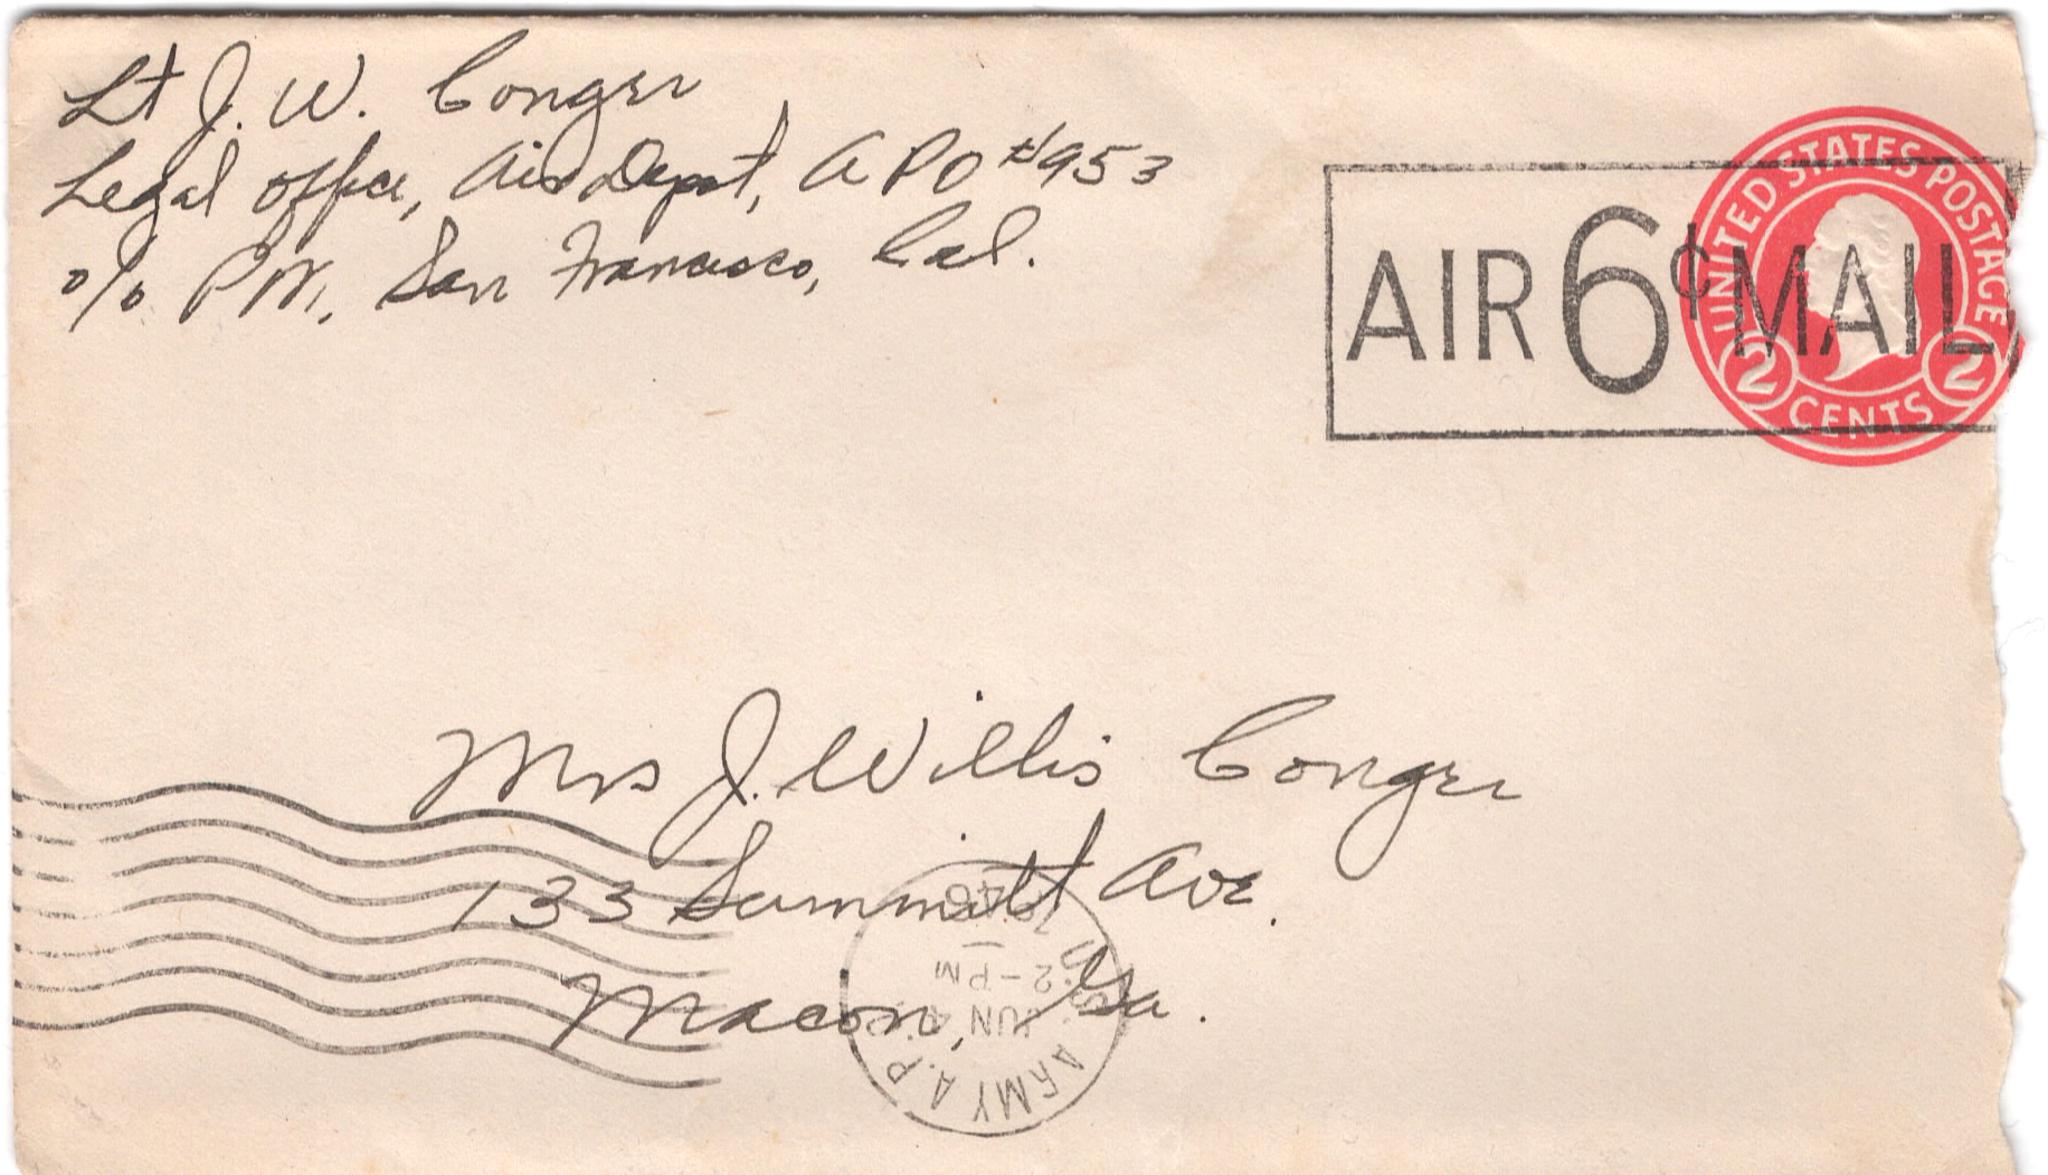 Lt J. W. Conger
Legal Office, Air Depot, APO #953
c/o PM, San Francisco, Cal.
UNITED STATES POSTAGE
2 CENTS 2
AIR 6¢ MAIL
Mrs J. Willis Conger
133 Summitt Ave.
Macon, Ga.
U.S. ARMY A.P.
JUN
2-PM